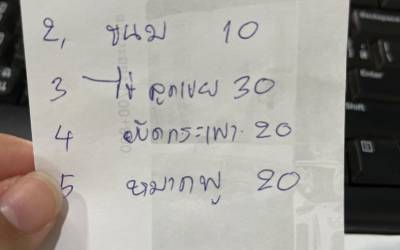 2, ขนม 10
3 ไข่ลูกเขย 30
4 ผัดกระเพา 20
5 หมาดฟู 20